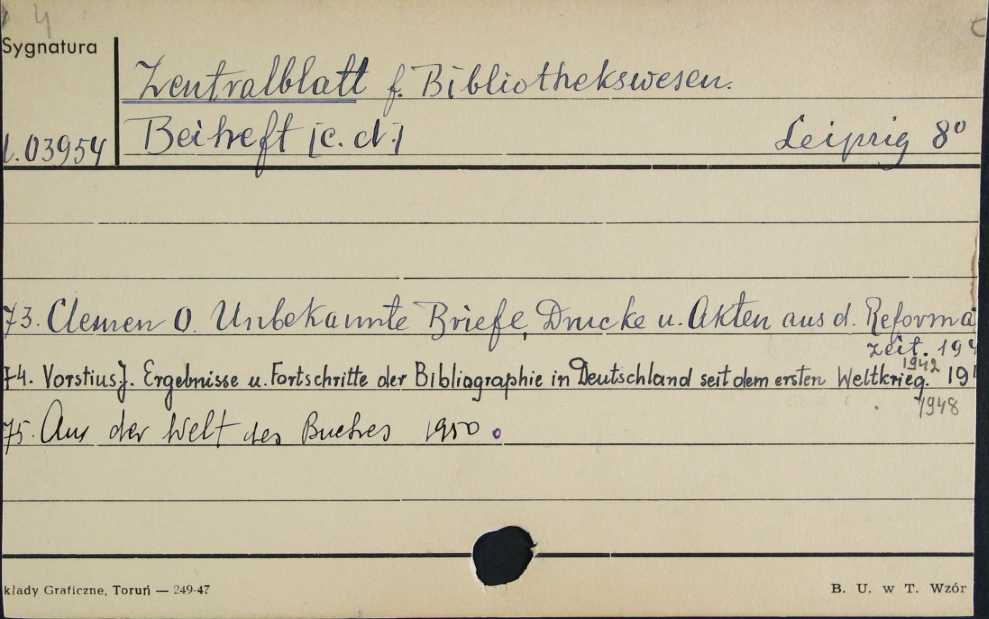 4
Sygnatura
Zentralblatt f. Bibliothekswesen.
Beiheft [c. d.]
Leipzig 8°
03954
73. Clemen O. Unbekannte Briefe, Drucke u. Akten aus d. Reforma
zeit. 19
74. Vorstius J. Ergebnisse u. Fortschritte der Bibliographie in Deutschland seit dem ersten Weltkrieg. 19
1942
1948
75. Aus der Welt des Buches 1950
kłady Graficzne, Toruń — 249-47
B. U. w T. Wzór